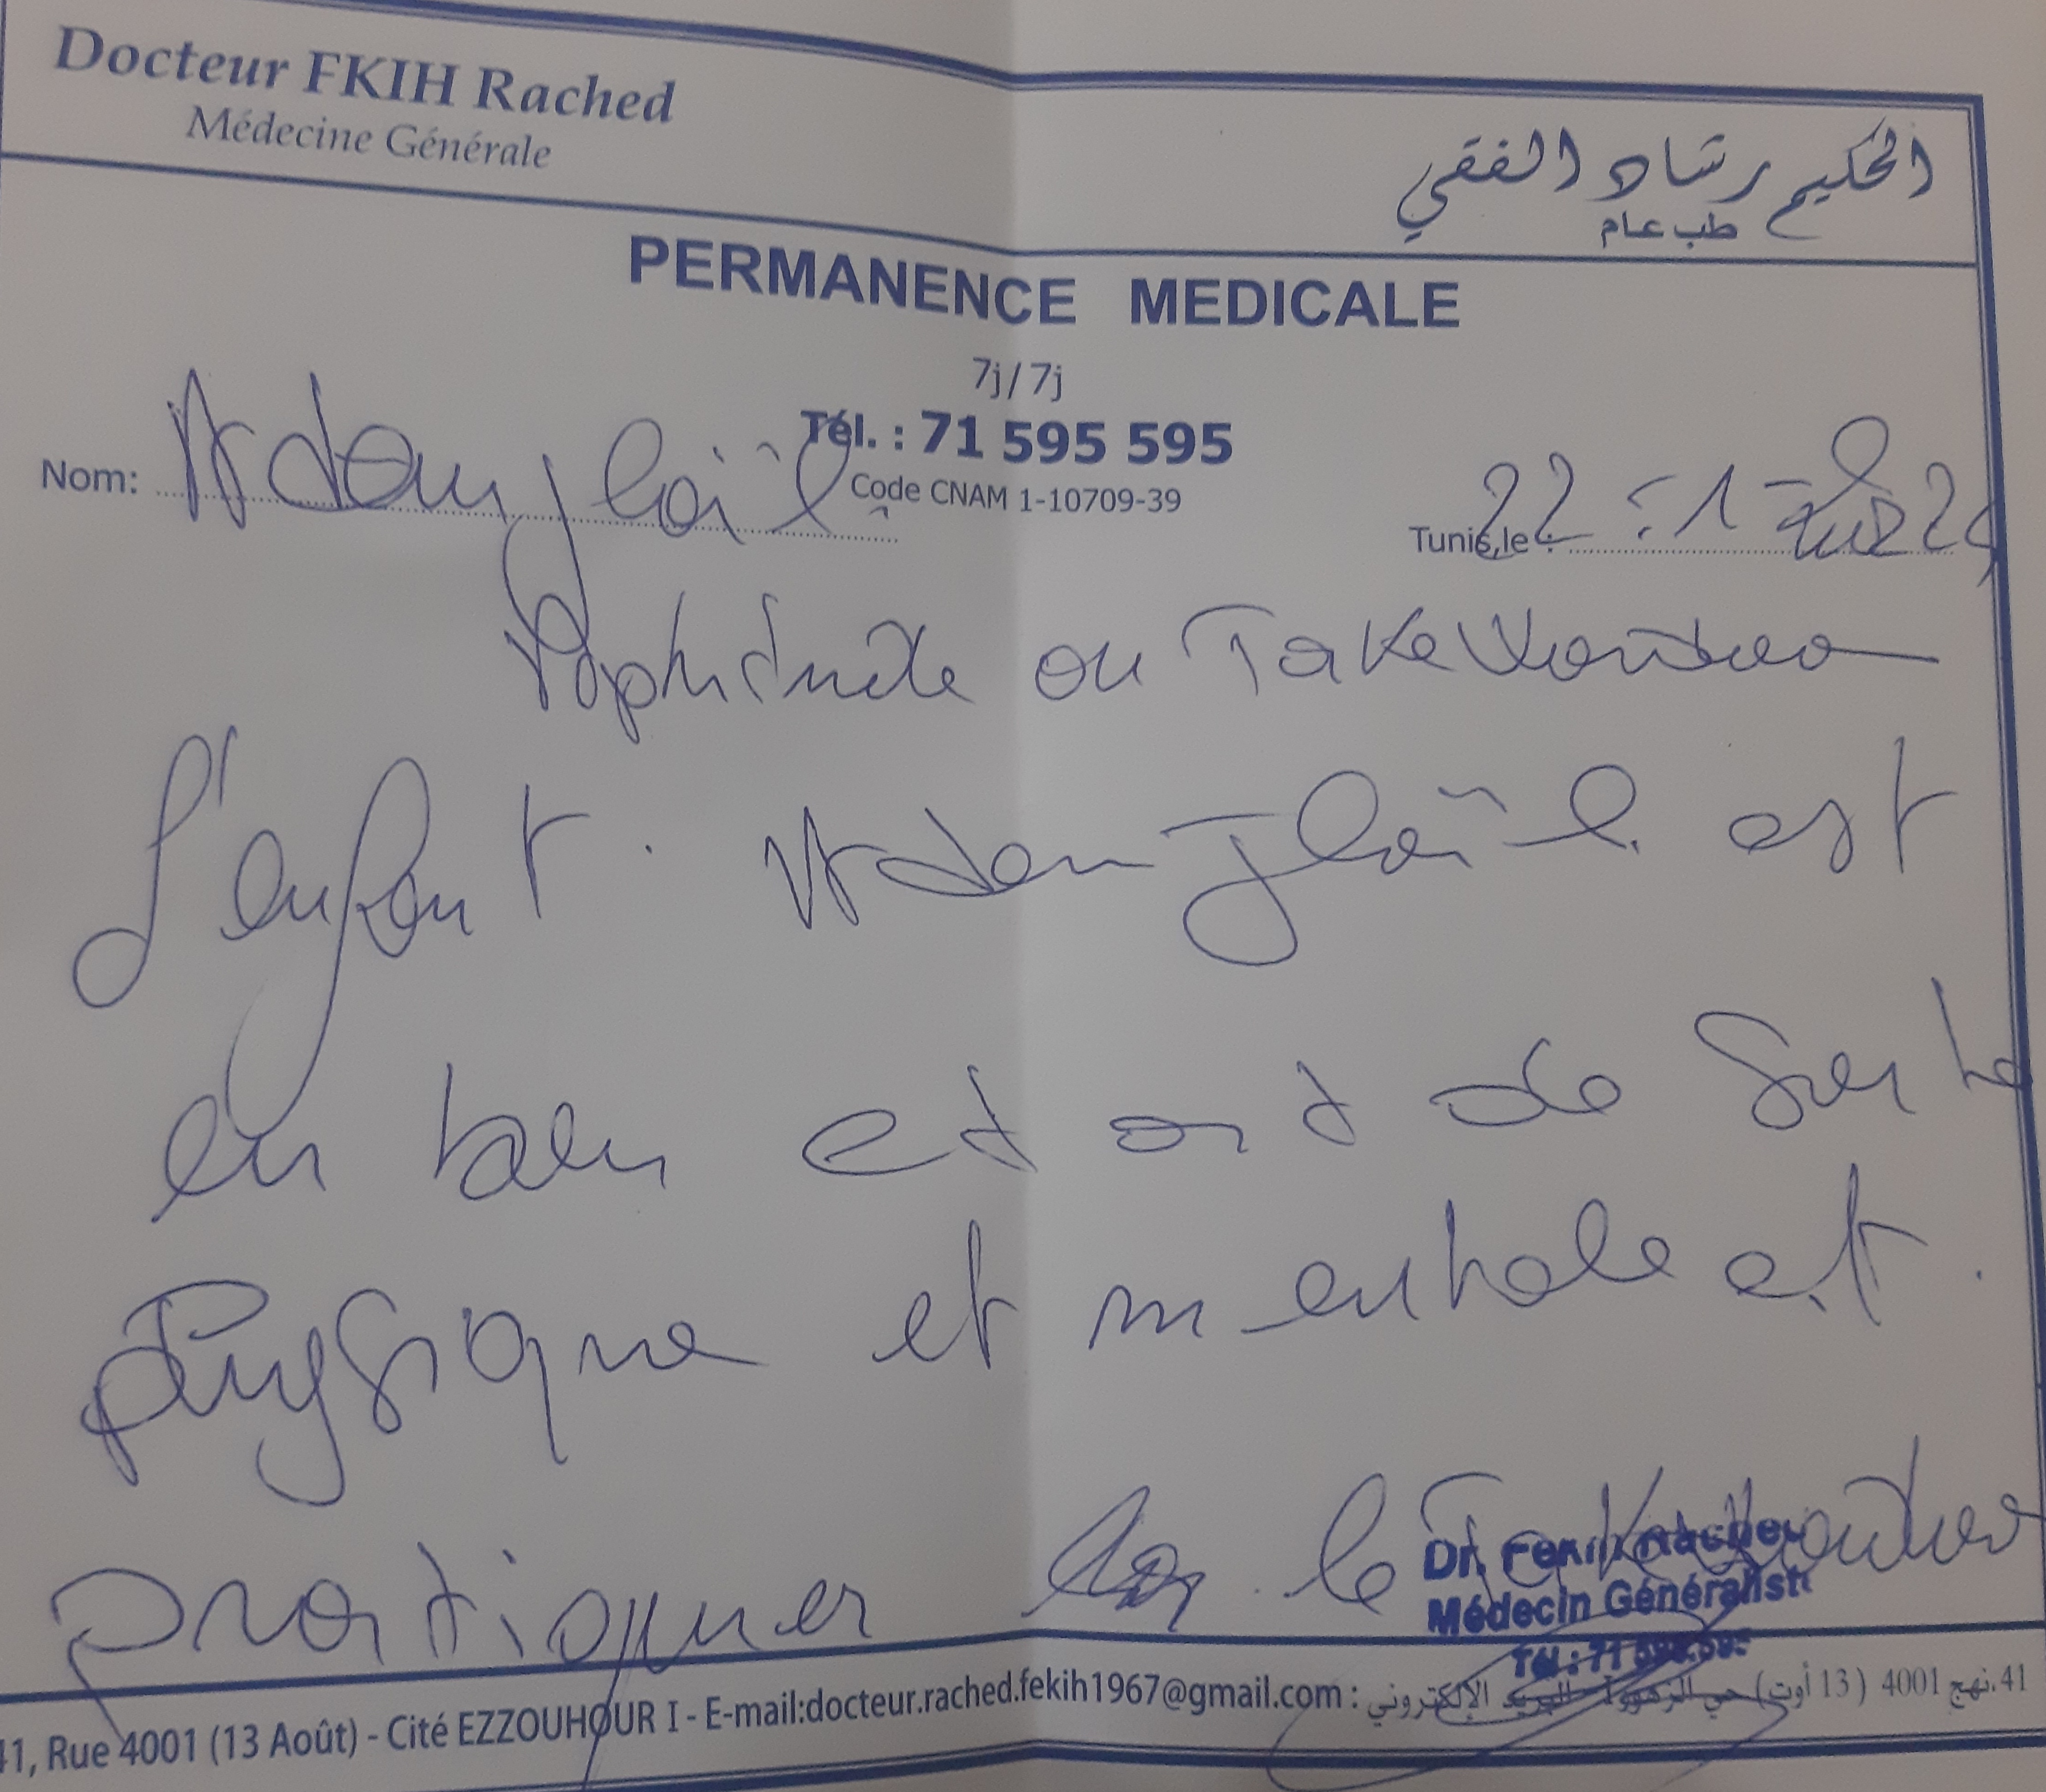 Docteur FKIH Rached
Médecine Générale
الحكيم رشاد الفقي
طب عام
PERMANENCE MEDICALE
7j/7j
Tél. : 71 595 595
Code CNAM 1-10709-39
Nom: Adem Jlaïl
Tunis, le 22
Aptitude au Takewondoo
L'enfant Adem Jlaïl est
en bon etat de Sante
physique et mentale et
pratiquer le Takewondoo
Dr. Fekih Rached
Médecin Généraliste
Tél : 71 595.595
41, Rue 4001 (13 Août) - Cité EZZOUHOUR I - E-mail:docteur.rached.fekih1967@gmail.com : 41.نهج 4001 (13 أوت) حي الزهور I- البريد الإلكتروني